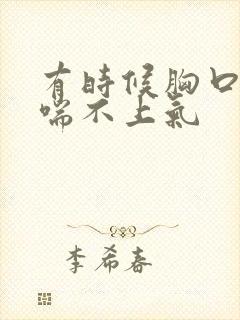 有時候胸口
喘不上氣
李希春